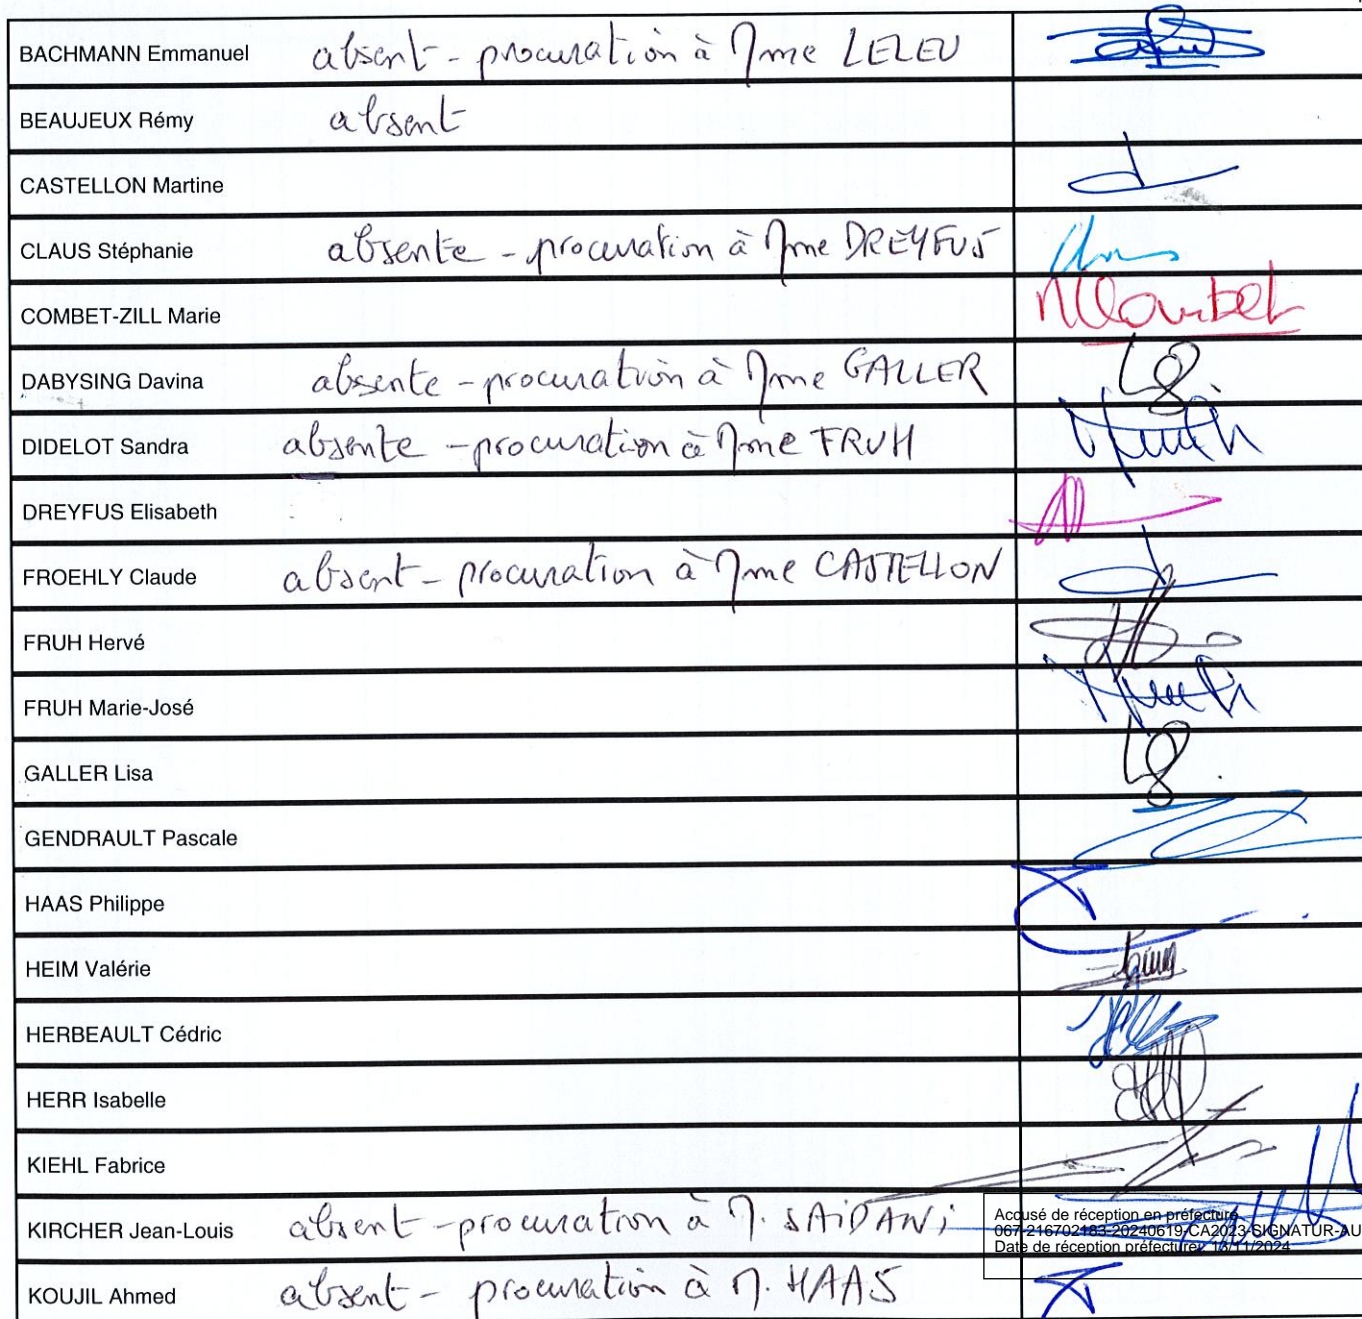 BACHMANN Emmanuel absent - procuration à Mme LELEU
BEAUJEUX Rémy absent
CASTELLON Martine
CLAUS Stéphanie absente - procuration à Mme DREYFUS
COMBET-ZILL Marie
DABYSING Davina absente - procuration à Mme GALLER
DIDELOT Sandra absente - procuration à Mme FRUH
DREYFUS Elisabeth
FROEHLY Claude absent - procuration à Mme CASTELLON
FRUH Hervé
FRUH Marie-José
GALLER Lisa
GENDRAULT Pascale
HAAS Philippe
HEIM Valérie
HERBEAULT Cédric
HERR Isabelle
KIEHL Fabrice
KIRCHER Jean-Louis absent - procuration à M. SAIDANI
Accusé de réception en préfecture
067-216702183-20240619-CA2023-SIGNATUR-AU
Date de réception préfecture: 13/11/2024
KOUJIL Ahmed absent - procuration à M. HAAS